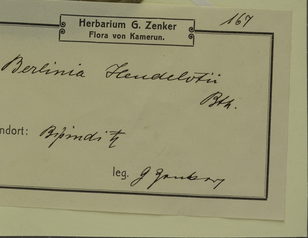 Herbarium G. Zenker
Flora von Kamerun.
167
Berlinia Heudelotii
Bth.
ndort: Bipindi
leg. G Zenker